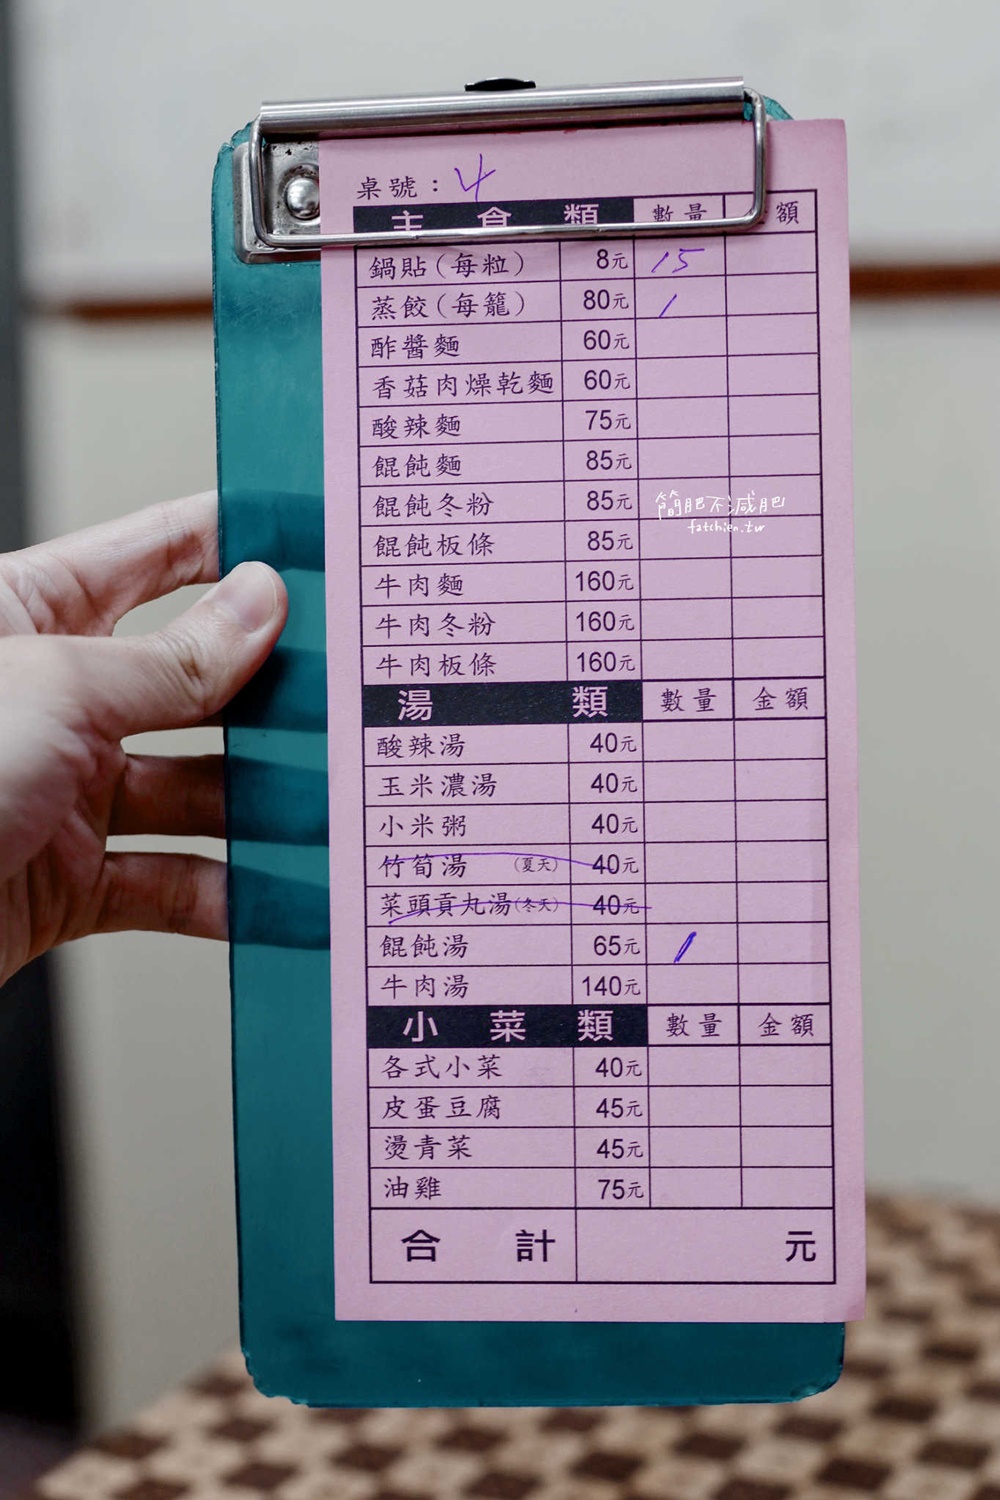 桌號：4
主食類 數量 額
鍋貼(每粒) 8元 15
蒸餃(每籠) 80元 1
酢醬麵 60元
香菇肉燥乾麵 60元
酸辣麵 75元
餛飩麵 85元
餛飩冬粉 85元
簡肥不減肥
fatchien.tw
餛飩板條 85元
牛肉麵 160元
牛肉冬粉 160元
牛肉板條 160元
湯類 數量 金額
酸辣湯 40元
玉米濃湯 40元
小米粥 40元
竹筍湯 (夏天) 40元
菜頭貢丸湯(冬天) 40元
餛飩湯 65元 1
牛肉湯 140元
小菜類 數量 金額
各式小菜 40元
皮蛋豆腐 45元
燙青菜 45元
油雞 75元
合計 元